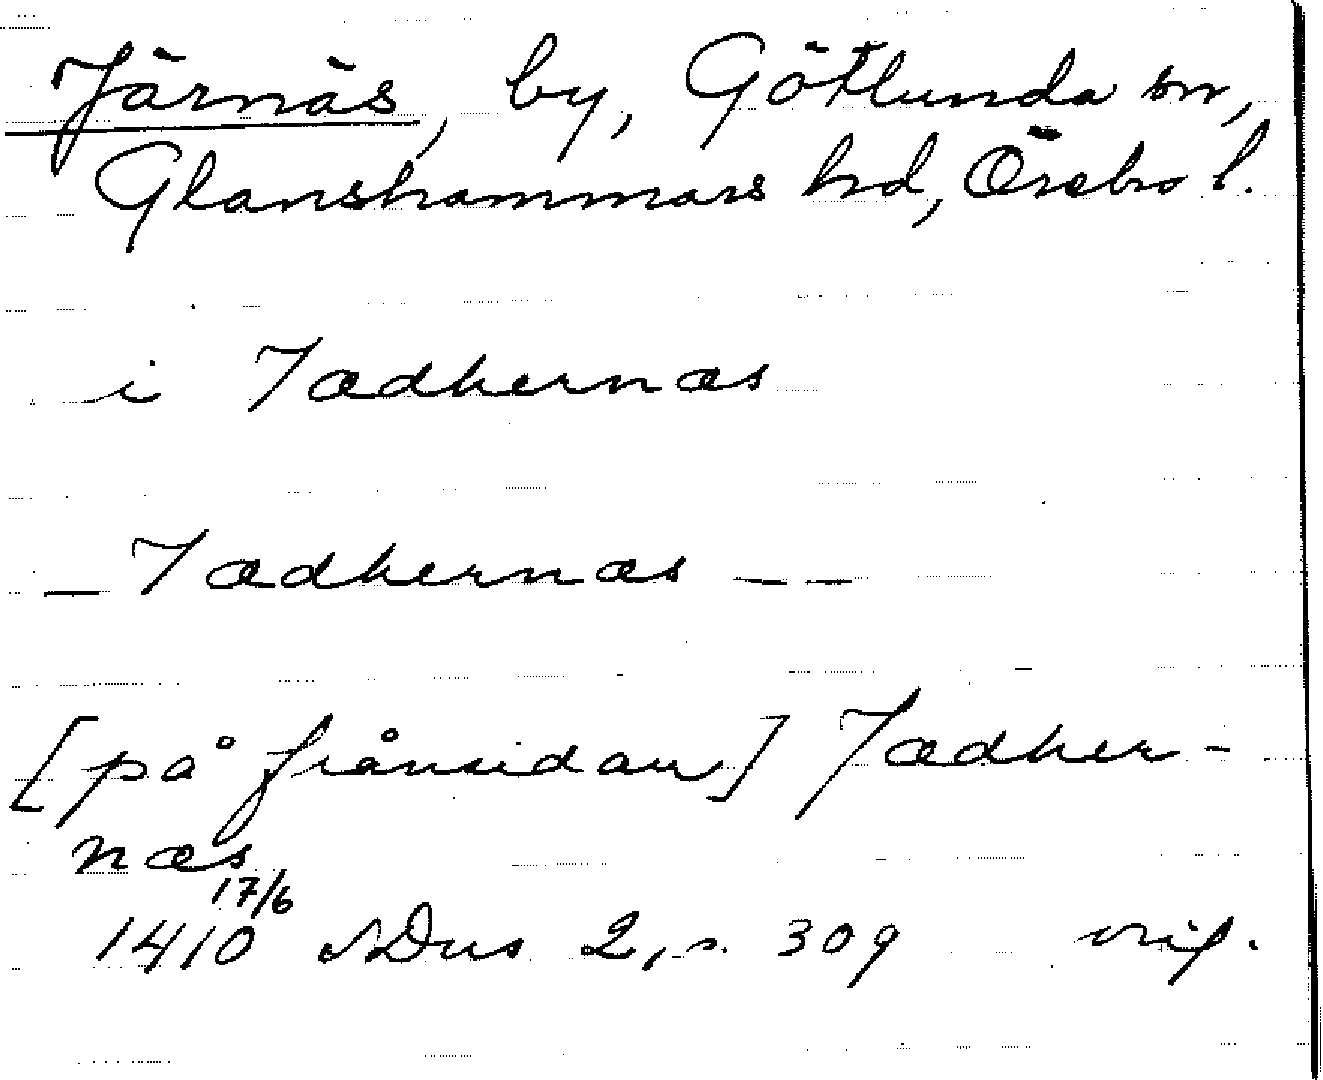 Järnäs, by, Götlunda sn,
Glanshammars hd, Örebro l.
i Jædhernæs
_ Jædhernæs _ _
[på frånsidan] Jædher-
næs
17/6
1410 SDns 2, s. 309 orig.